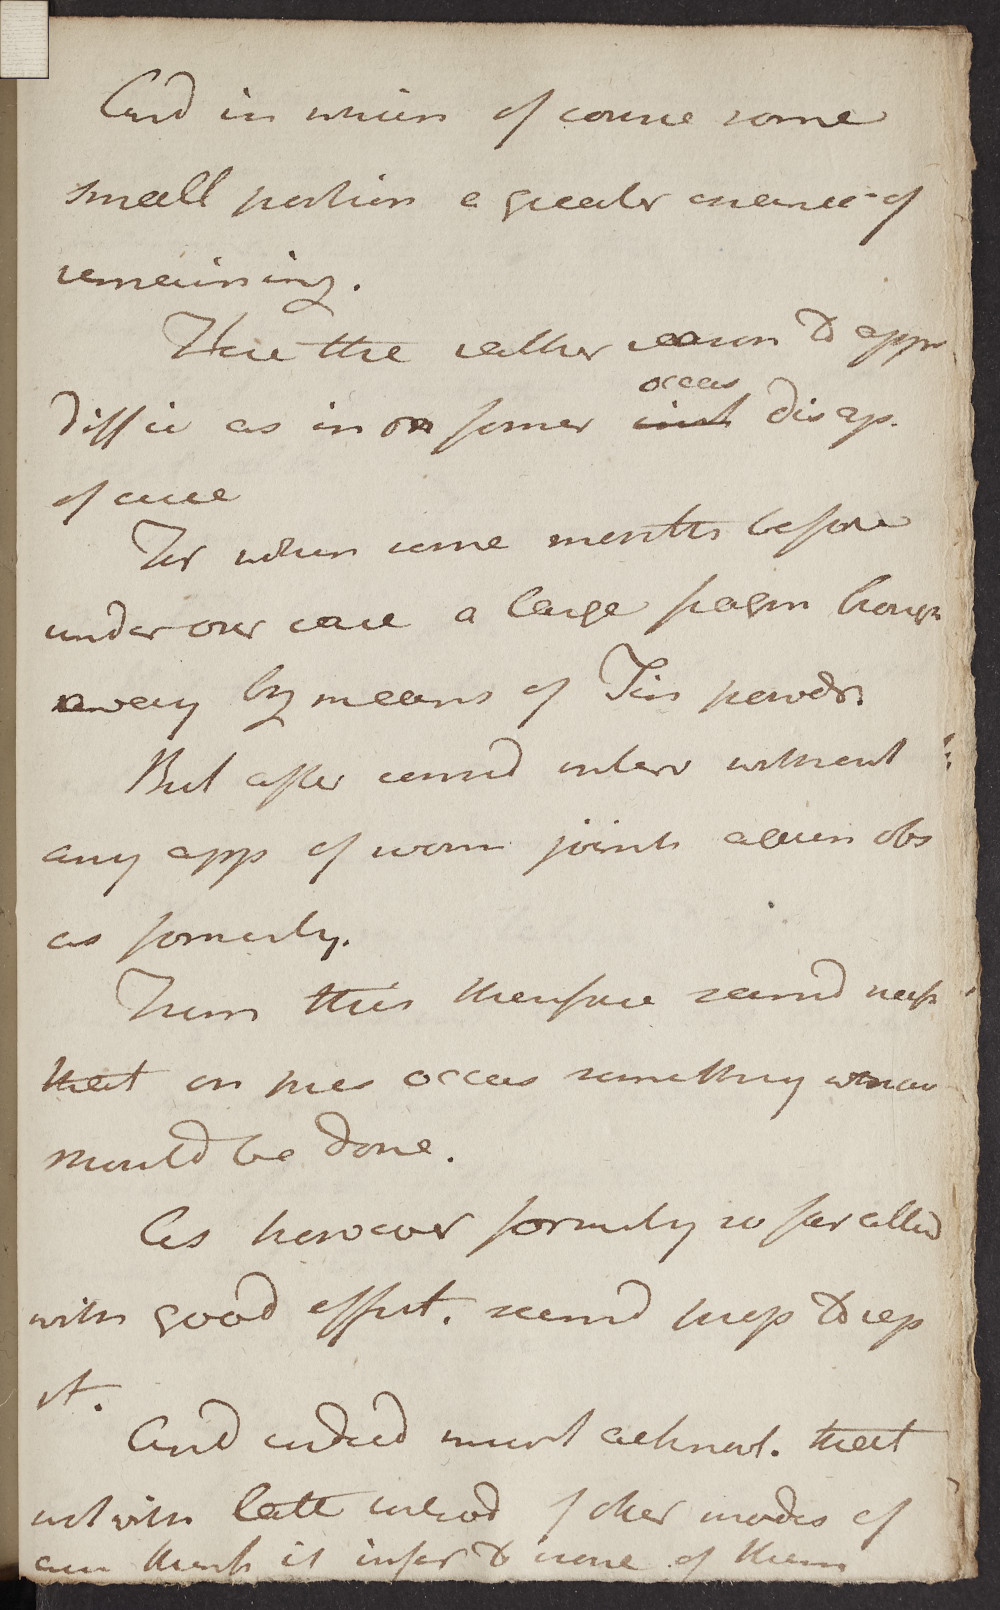 And in which of course some
small portion a greater chance of
remaining.
Have the rather reason to appr
diffic as in on former inst occas disap.
of cure
For when some months before
under our care a large portion brought
away by means of Tin powdr.
But after cons'd interv without
any app of worm joints again obs
as formerly.
From this therefore seemd neces
that on pres occas something
should be done.
As however formerly so far
with good effect. seemd prop to rep
it.
And indeed must acknowl. that
notwith late introd of other modes of
cure think it infer to none of them